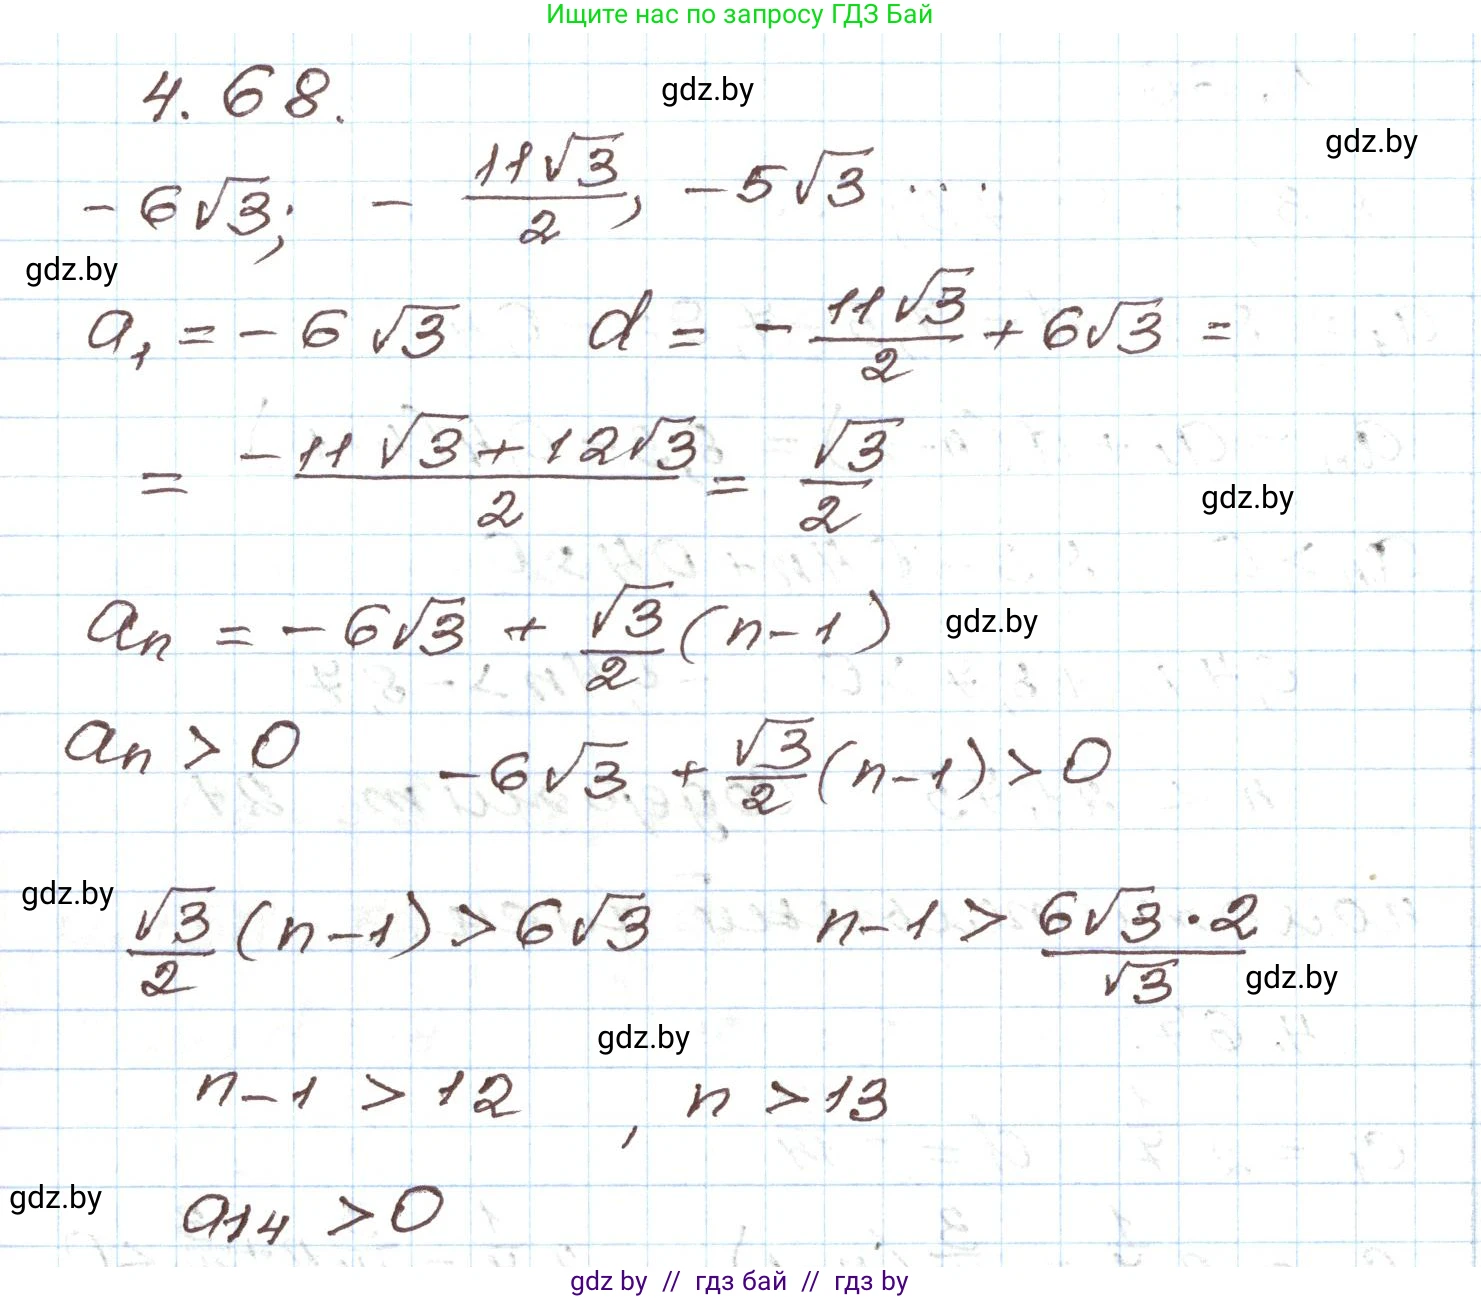 Ищите нас по запросу ГДЗ Бай
4.68.
gdz.by
gdz.by
-6√3; - 11√3/2, -5√3 ...
gdz.by
a₁ = -6√3 d = - 11√3/2 + 6√3 =
= -11√3 + 12√3/2 = √3/2
gdz.by
aₙ = -6√3 + √3/2 (n-1)
gdz.by
aₙ > 0 -6√3 + √3/2 (n-1) > 0
gdz.by
√3/2 (n-1) > 6√3 n-1 > 6√3·2/√3
gdz.by
gdz.by
n-1 > 12 , n > 13
gdz.by
a₁₄ > 0
gdz by // гдз бай // gdz by